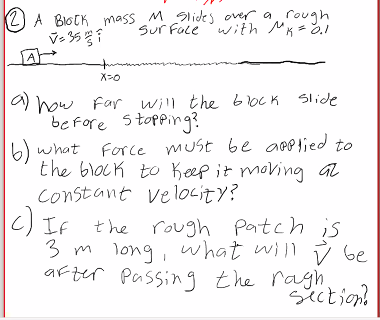 ② A Block mass M slides over a rough
surface with μk = 0.1
V⃗ = 35 m/s î
A
x=0
a) how far will the block slide
before stopping?
b) what force must be applied to
the block to keep it moving at
constant velocity?
c) If the rough patch is
3 m long, what will V⃗ be
after passing the ragh
section?